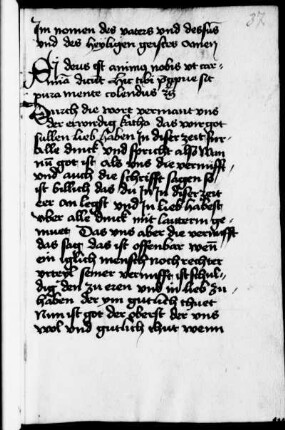 37
Im nomen des vaters vnd dessuns
vnd des heyligen geistes amen
Si deus est animus nobis vt car-
mina dicut Hic tibi precipue sit
pura mente colendus
Durch die wort vermant vns
der erwirdig katho das wir got
sullen lieb haben in diser zeit fur
alle dinck vnd spricht also Nun
nu got ist als vns die vernufft
vnd auch die schrifft sagen so
ist billich das du in in diser zeit
eer an legst vnd in lieb habest
vber alle dinck mit lauterm ge-
muet Das vns aber die vernufft
das sag das ist offenbar wen
ein iglich mensch noch rechter
vrteyl seiner vernufft ist schul-
dig den zu eren vnd in lieb zu
haben der im gutlich thuet
Nun ist got der oberst der vns
wol vnd gutlich thut wenn